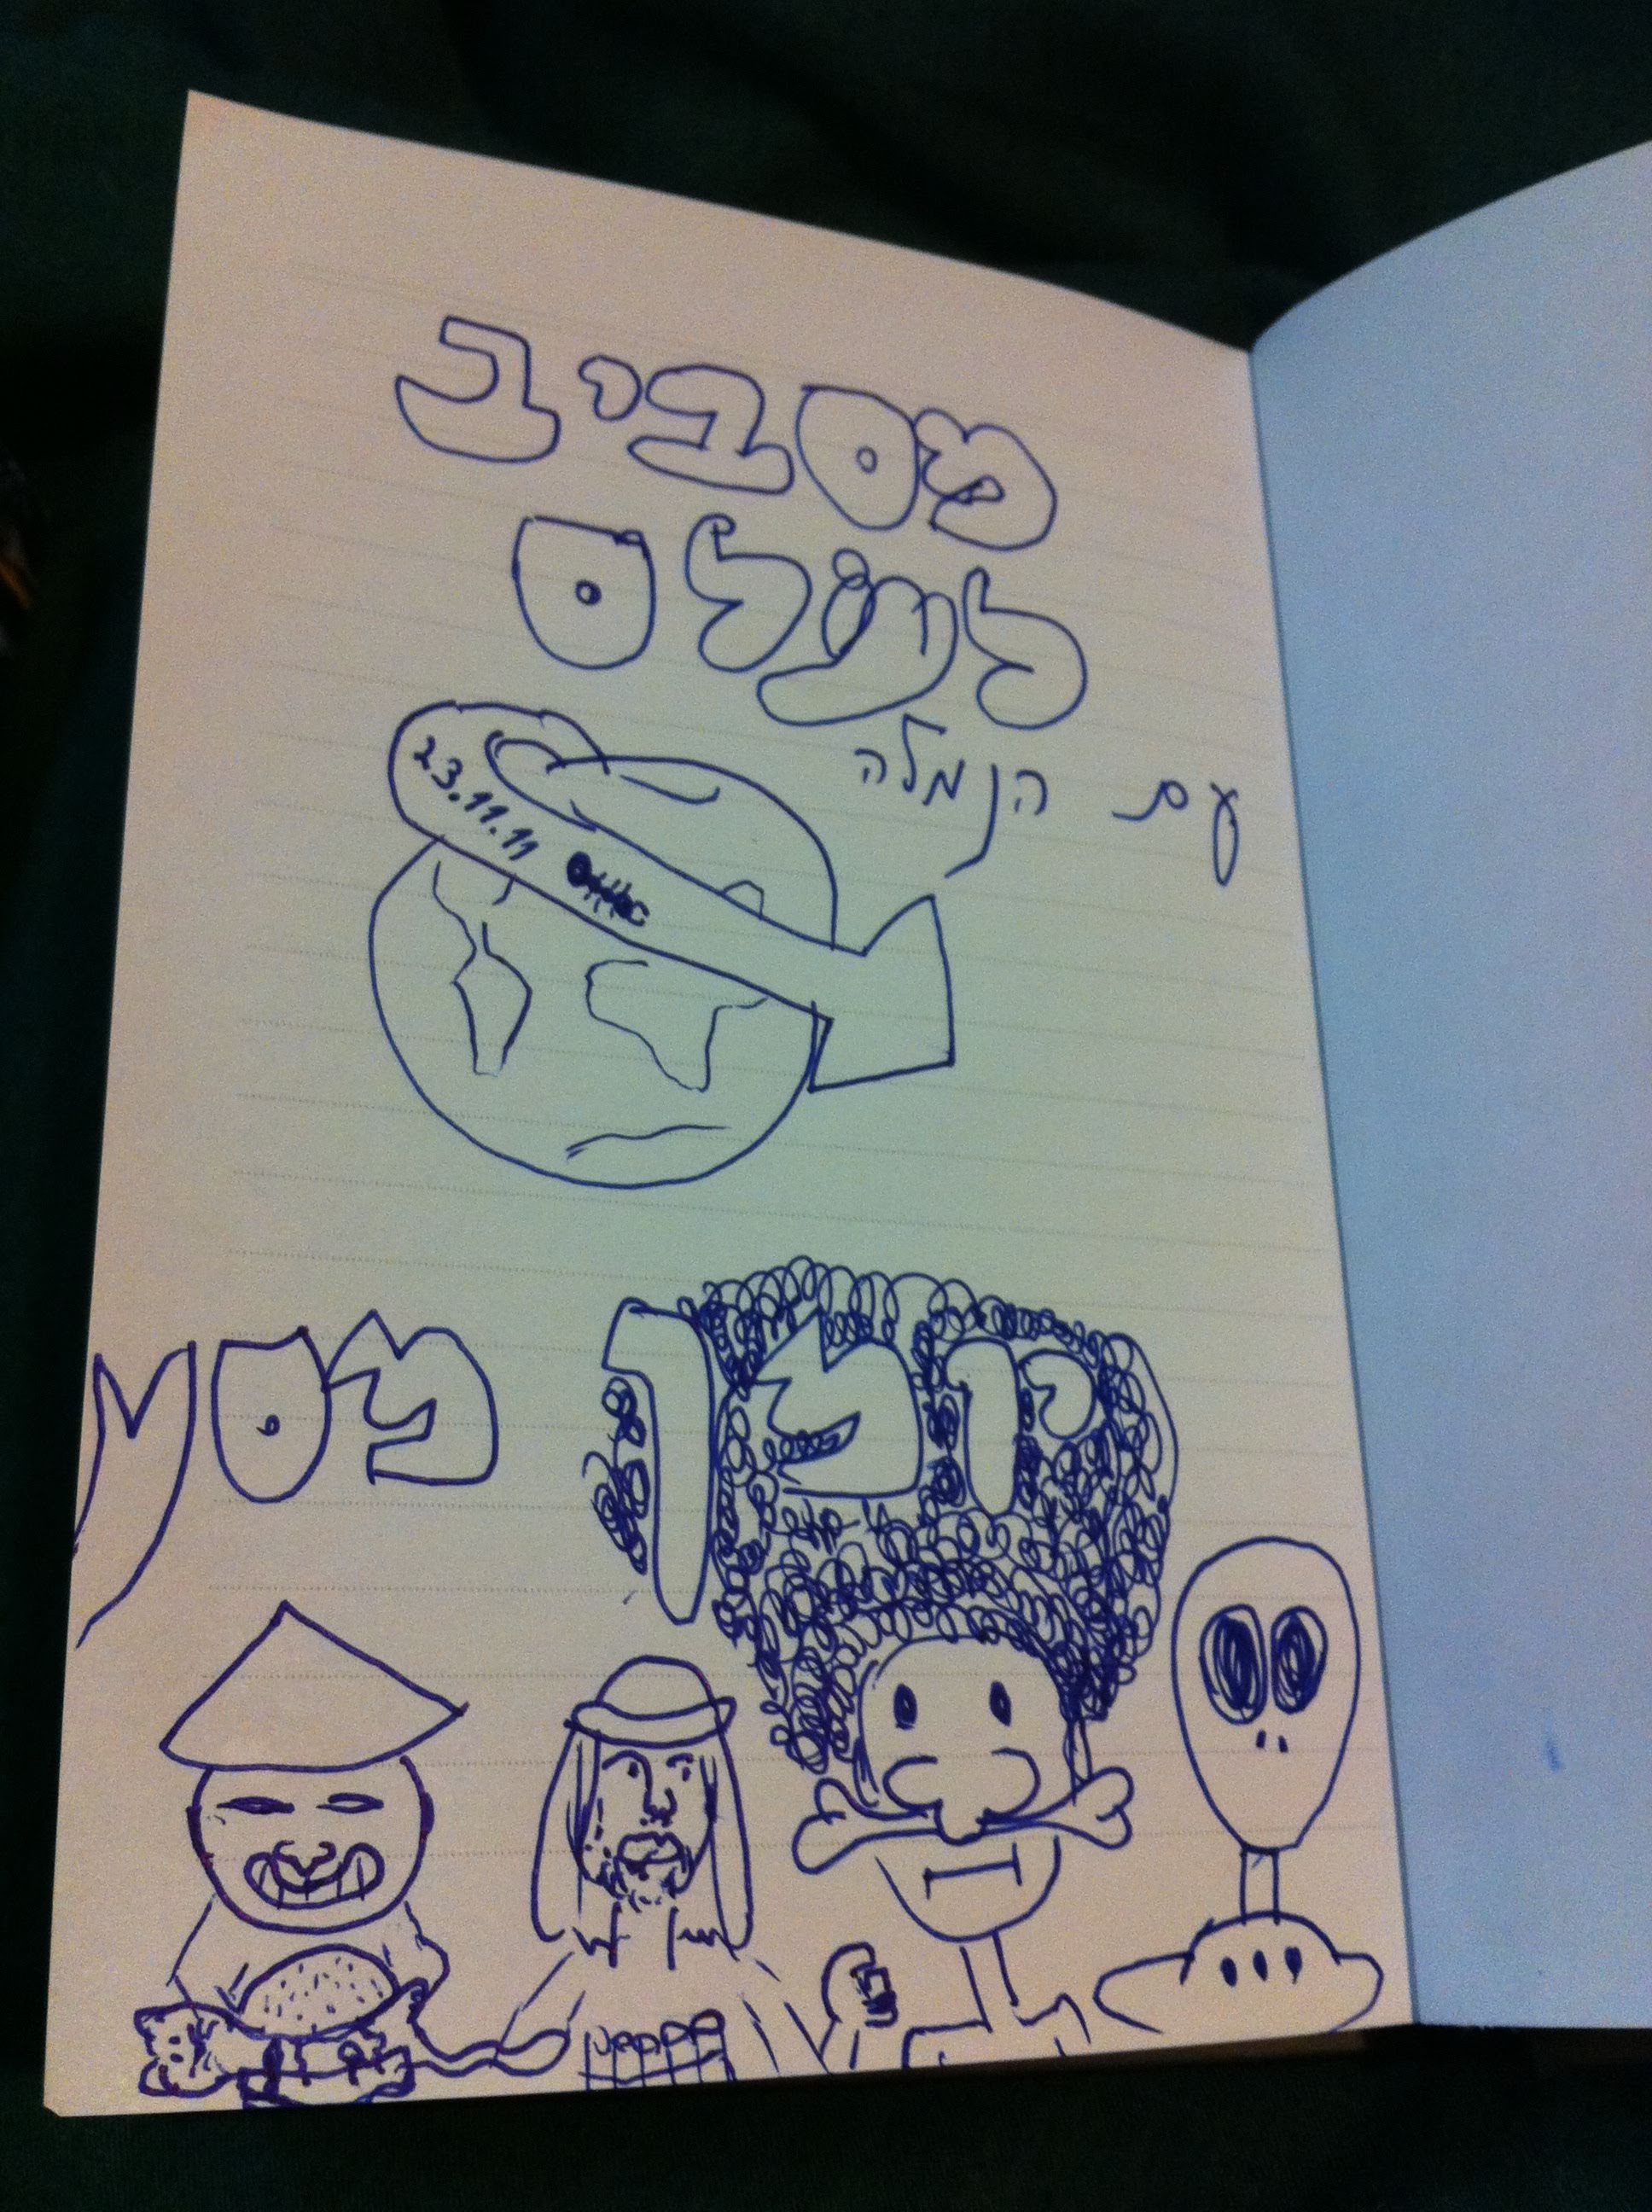 מסביב
לעולם
עם הנמלה
23.11.11
יומן מסע